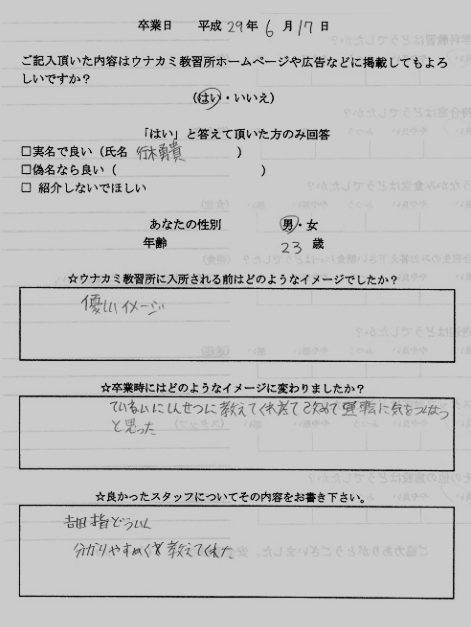 卒業日 平成29年6月17日
ご記入頂いた内容はウナカミ教習所ホームページや広告などに掲載してもよろ
しいですか？
(はい・いいえ)
「はい」と答えて頂いた方のみ回答
□実名で良い（氏名 ）
□偽名なら良い（ ）
□ 紹介しないでほしい
あなたの性別 男・女
年齢 23 歳
☆ウナカミ教習所に入所される前はどのようなイメージでしたか？
優しいイメージ
☆卒業時にはどのようなイメージに変わりましたか？
ていねいにしんせつに教えてくれ 改めて運転に気をつけなう
と思った
☆良かったスタッフについてその内容をお書き下さい。
吉田 指どういん
分かりやすく 教えてくれた